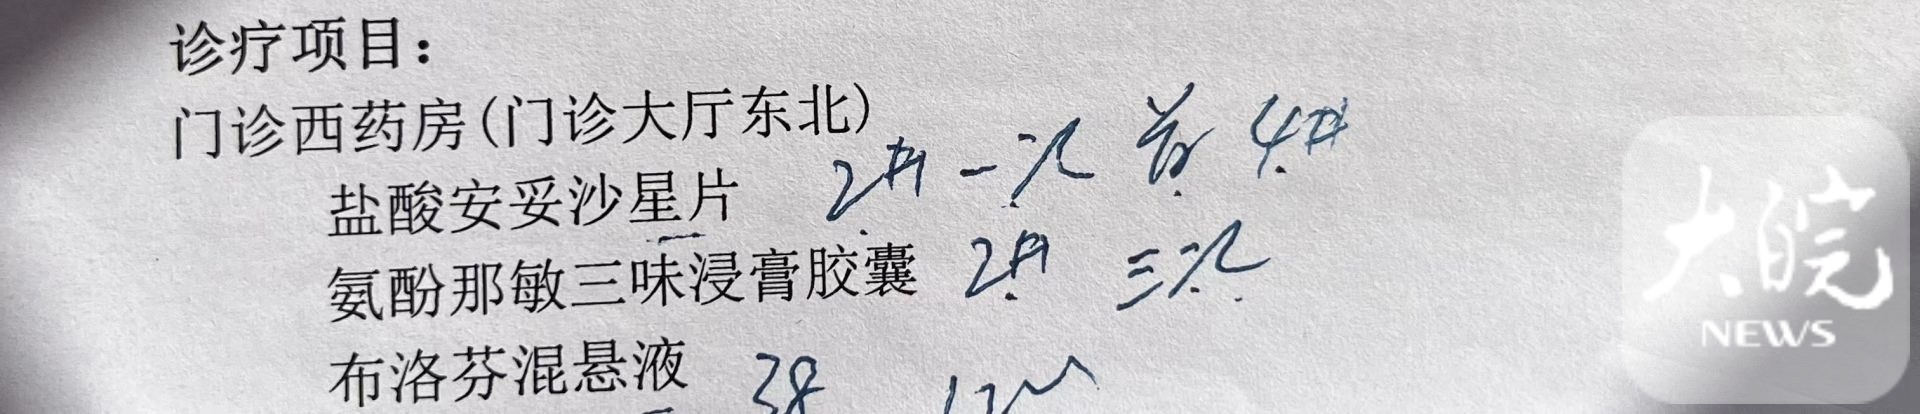 诊疗项目：
门诊西药房(门诊大厅东北)
盐酸安妥沙星片 2# 一次 首 4#
氨酚那敏三味浸膏胶囊 2# 三次
布洛芬混悬液 38
大皖
NEWS